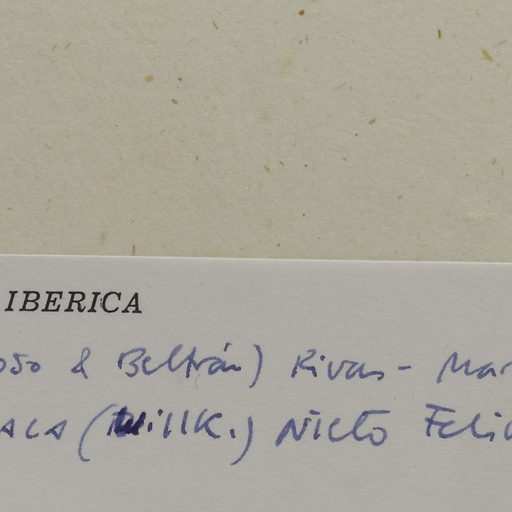 IBERICA
oso & Beltrán) Rivas-Mar
ACA (Willk.) Nieto Feli